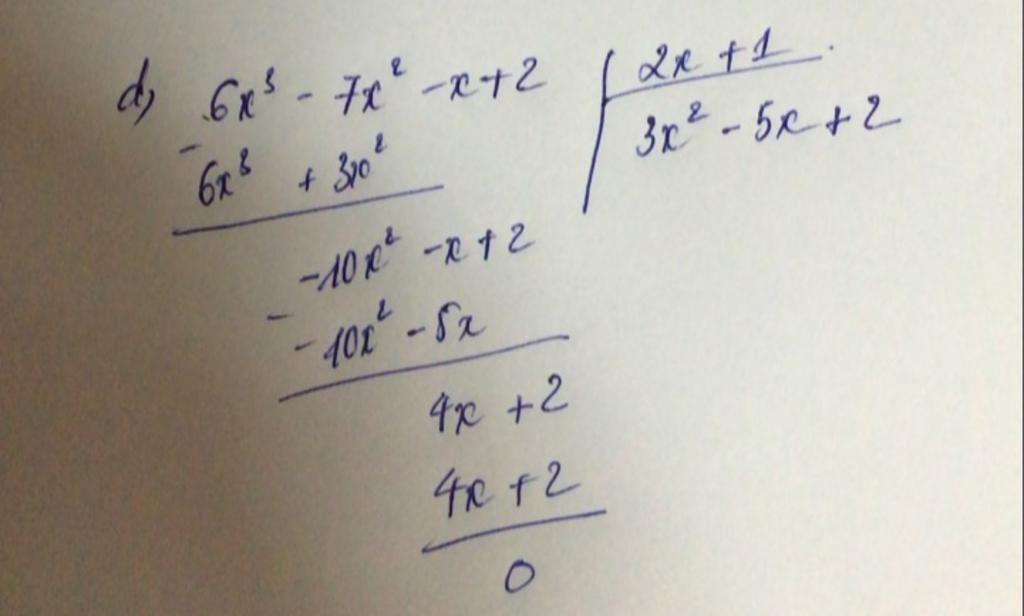 d, 6x³ - 7x² - x + 2 | 2x + 1
- 3x² - 5x + 2
6x³ + 3x²
-10x² - x + 2
-
-10x² - 5x
4x + 2
4x + 2
0